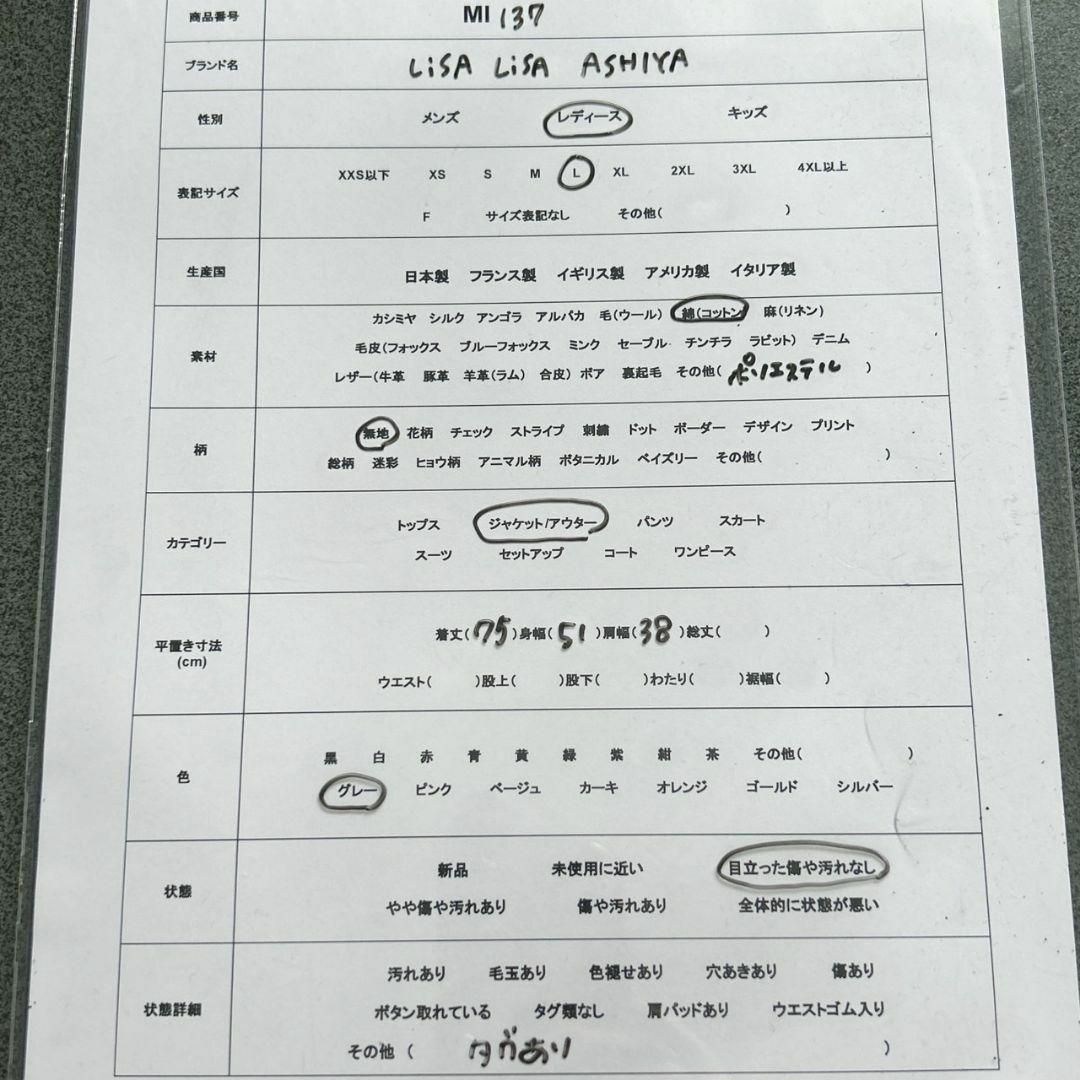 商品番号 MI 137
ブランド名 LiSA LiSA ASHIYA
性別 メンズ レディース キッズ
表記サイズ XXS以下 XS S M L XL 2XL 3XL 4XL以上
F サイズ表記なし その他( )
生産国 日本製 フランス製 イギリス製 アメリカ製 イタリア製
素材 カシミヤ シルク アンゴラ アルパカ 毛(ウール) 綿(コットン) 麻(リネン)
毛皮(フォックス ブルーフォックス ミンク セーブル チンチラ ラビット) デニム
レザー(牛革 豚革 羊革(ラム) 合皮) ボア 裏起毛 その他( ポリエステル )
柄 無地 花柄 チェック ストライプ 刺繍 ドット ボーダー デザイン プリント
総柄 迷彩 ヒョウ柄 アニマル柄 ボタニカル ペイズリー その他( )
カテゴリー トップス ジャケット/アウター パンツ スカート
スーツ セットアップ コート ワンピース
平置き寸法 (cm) 着丈( 75 )身幅( 51 )肩幅( 38 )総丈( )
ウエスト( )股上( )股下( )わたり( )裾幅( )
色 黒 白 赤 青 黄 緑 紫 紺 茶 その他( )
グレー ピンク ベージュ カーキ オレンジ ゴールド シルバー
状態 新品 未使用に近い 目立った傷や汚れなし
やや傷や汚れあり 傷や汚れあり 全体的に状態が悪い
状態詳細 汚れあり 毛玉あり 色褪せあり 穴あきあり 傷あり
ボタン取れている タグ類なし 肩パッドあり ウエストゴム入り
その他 ( タグあり )